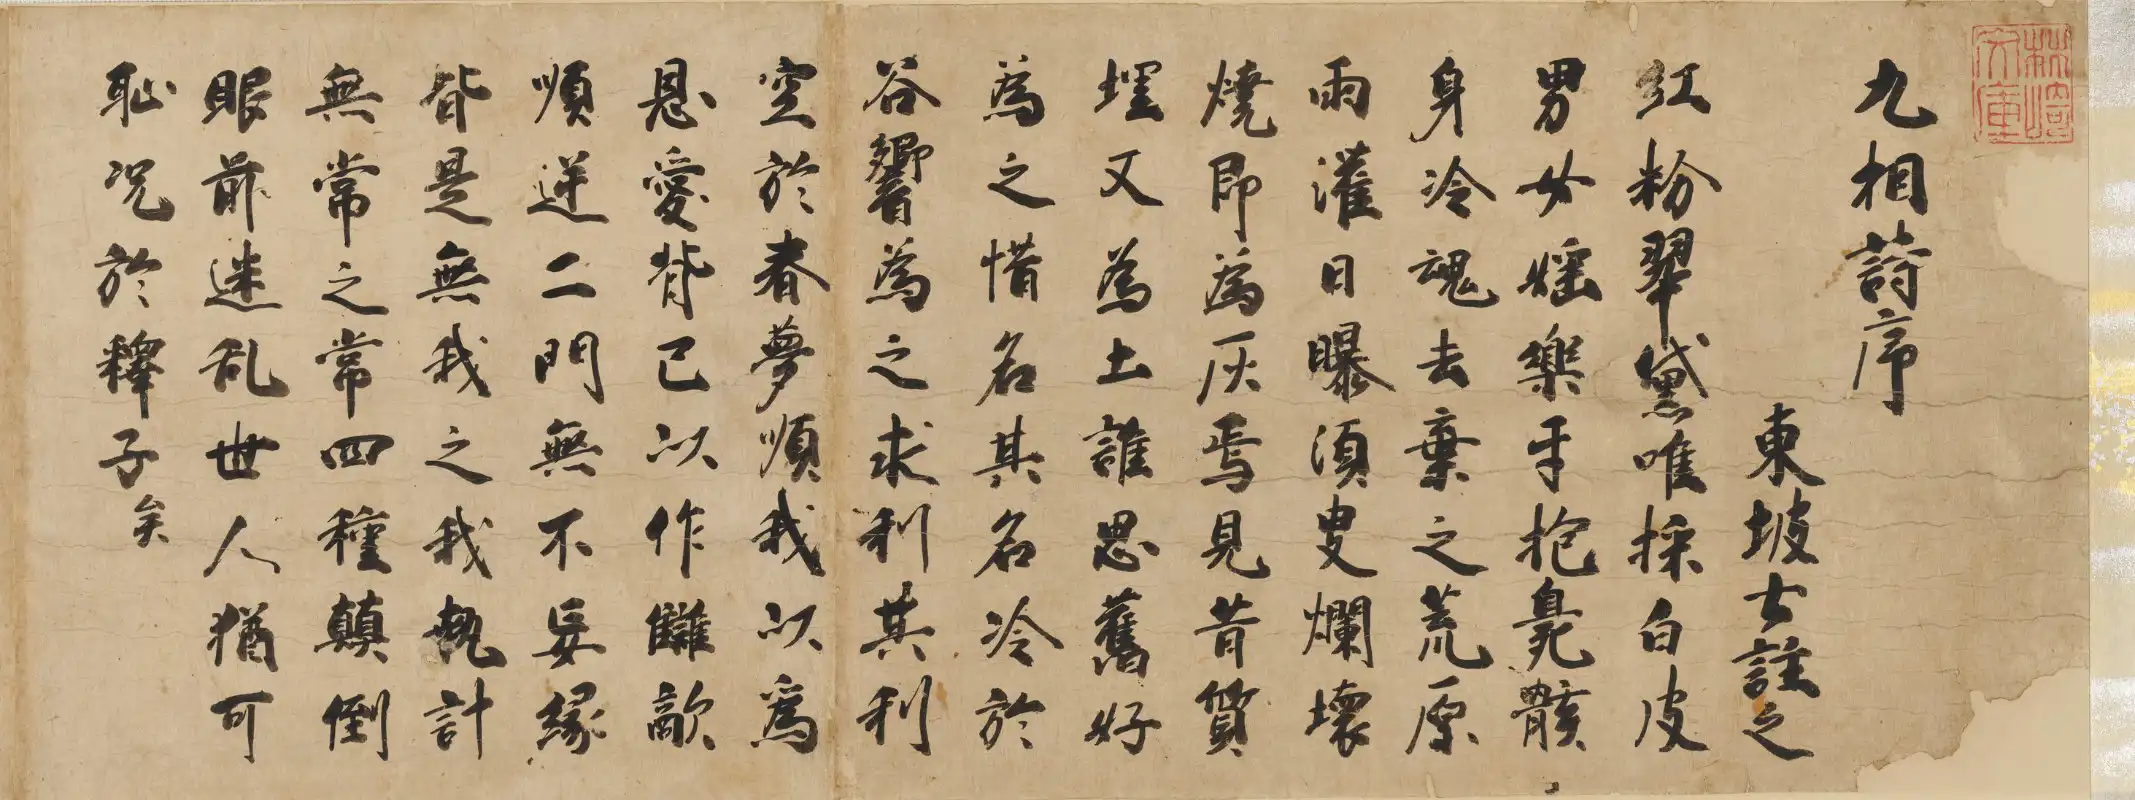 九相詩序
東坡士註之
紅粉翠黛唯採白皮
男女婬樂手抱臭骸
身冷魂去棄之荒原
雨灌日曝須臾爛壞
燒即為灰焉見昔質
埋又為土誰思舊好
為之惜名其名冷於
谷響為之求利其利
空於春夢順我以為
恩愛背己以作讎敵
順逆二門無不妄緣
皆是無我之我執計
無常之常四種顛倒
眼前迷乱世人猶可
恥况於釋子矣